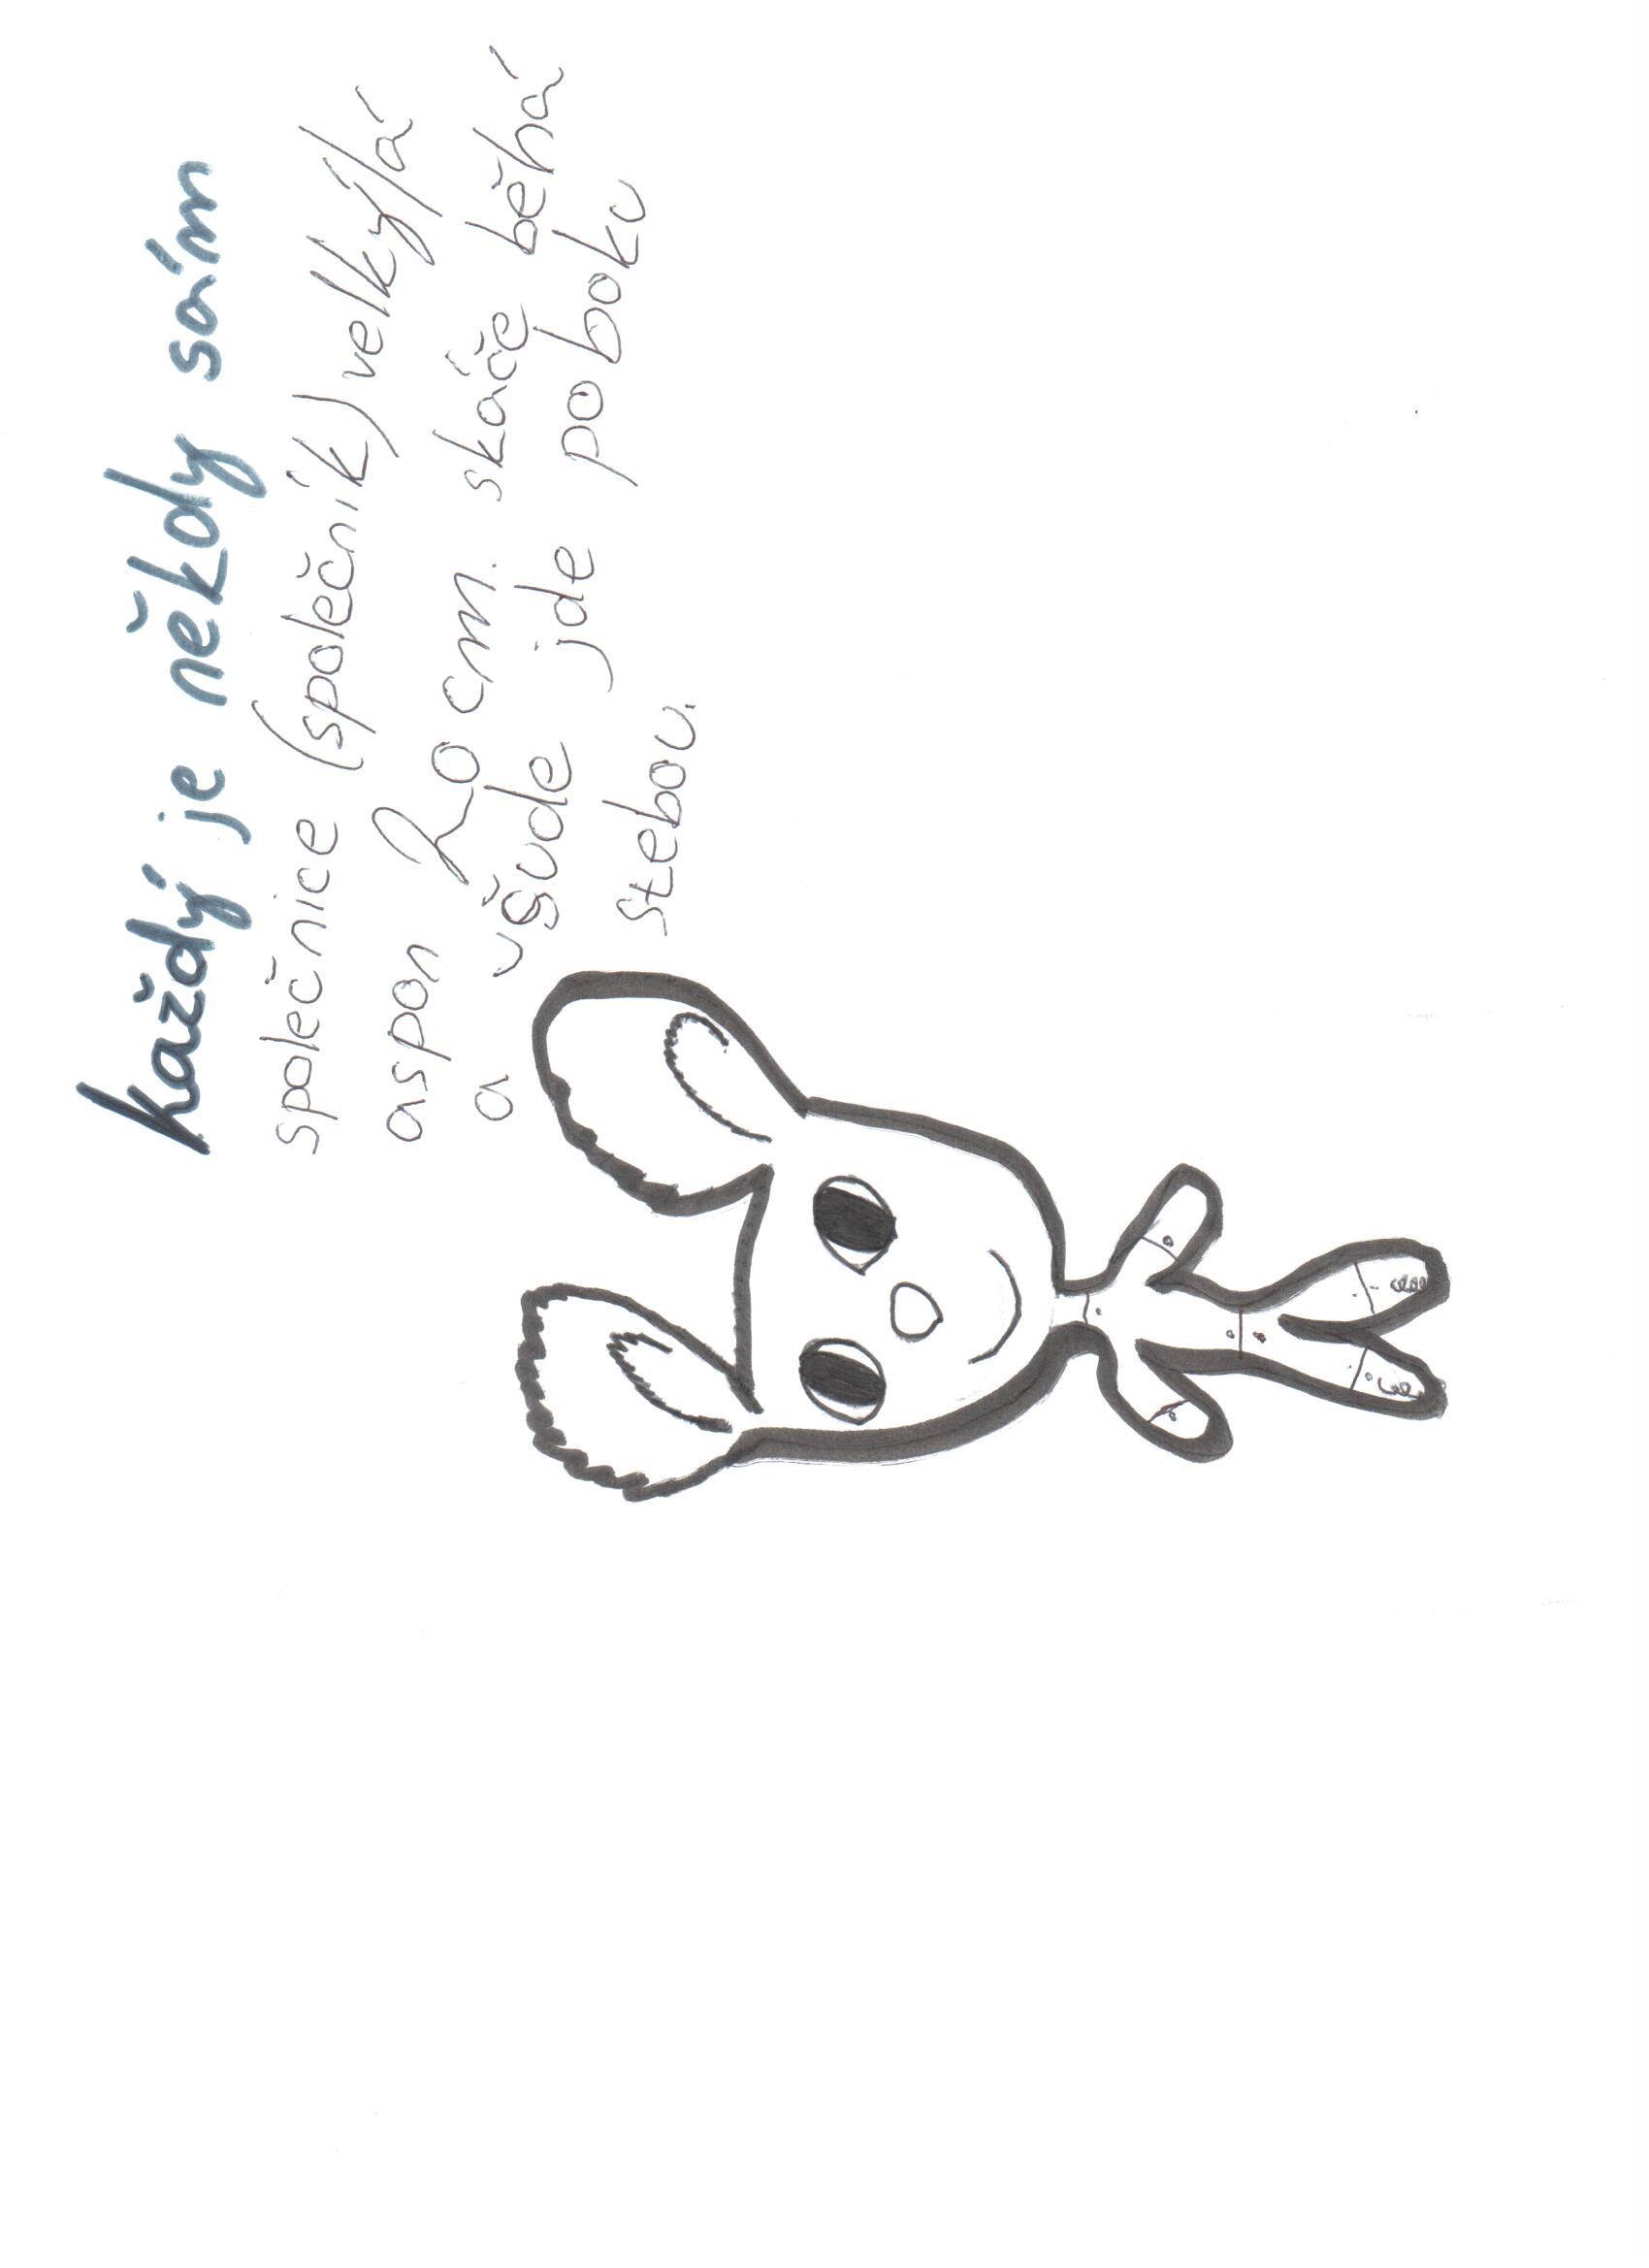 každý je někdy sám
společnice (společník) velký/á
aspon 20 cm. skáče běhá
a všude jde po boku
stebou.